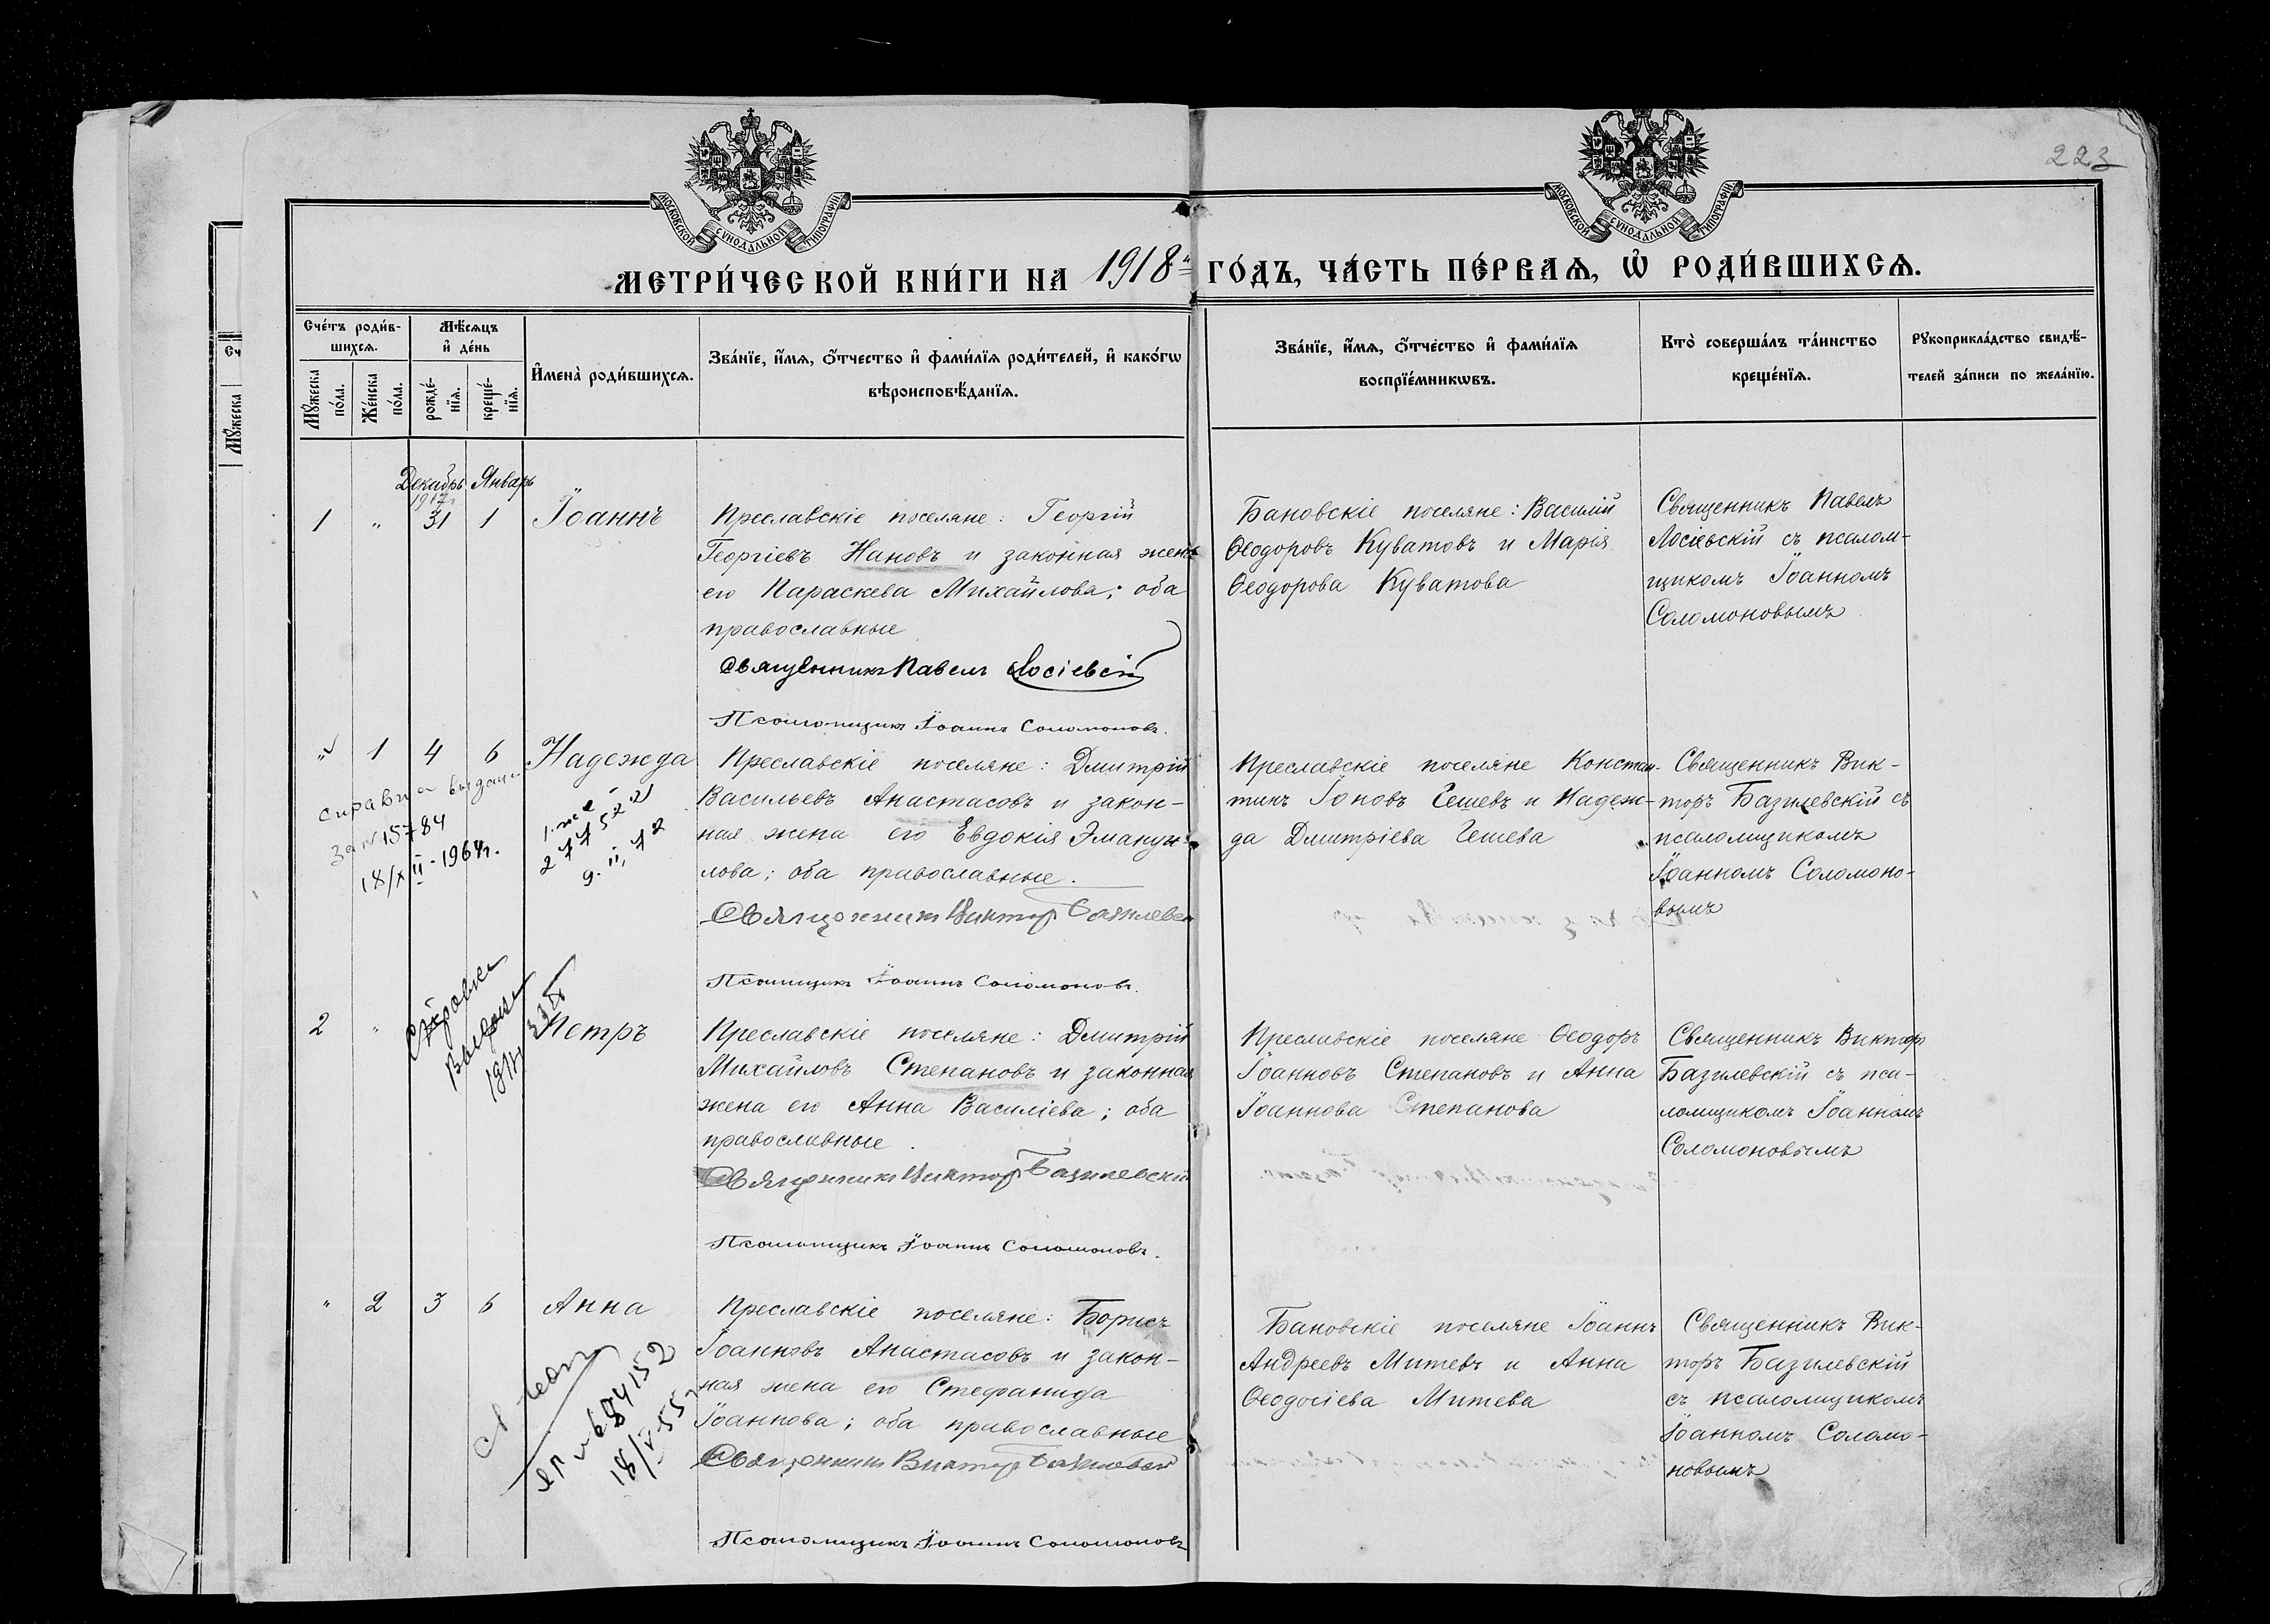 223
МОСКОВСКОЙ СѴНОДАЛЬНОЙ ТИПОГРАФІИ
МОСКОВСКОЙ СѴНОДАЛЬНОЙ ТИПОГРАФІИ
МЕТРИ́ЧЕСКОЙ КНИ́ГИ НА 1918 ГО́ДЪ, ЧА́СТЬ ПЕ́РВАѦ, Ѡ҆ РОДИ́ВШИХСѦ.
Сче́тъ роди́в-
шихсѧ.
Мꙋ́жеска
по́ла.
Же́нска
по́ла.
Мѣ́сѧцъ
и҆ де́нь
рожде́-
нїѧ.
креще́-
нїѧ.
И҆мена̀ роди́вшихсѧ.
Зва́нїе, и҆́мѧ, ѻ҆́тчество и҆ фами́лїѧ роди́телей, и҆ како́гѡ
вѣроисповѣ́данїѧ.
Зва́нїе, и҆́мѧ, ѻ҆́тчество и҆ фами́лїѧ
воспрїе́мникѡвъ.
Кто̀ соверша́лъ та́инство
креще́нїѧ.
Рꙋкоприкла́дство свидѣ́-
телей за́писи по жела́нїю.
Сч
Мꙋ́жеска
Декабрь Январь
1917
1 " 31 1 Іоаннъ
Преславскіе поселяне: Георгій
Георгіевъ Нановъ и законная жена
его Параскева Михайлова; оба
православные
Священникъ Павелъ Лосіевскій
Псаломщикъ Іоаннъ Соломоновъ.
Бановскіе поселяне: Василій
Ѳеодоровъ Куватовъ и Марія
Ѳеодорова Куватова
Священникъ Павелъ
Лосіевскій съ псалом-
щикомъ Іоанномъ
Соломоновымъ
" 1 4 6 Надежда
справка выдана
за №15784
18/XII-1964г.
277522
9.II,72
Преславскіе поселяне: Дмитрій
Васильевъ Анастасовъ и закон-
ная жена его Евдокія Эмануи-
лова; оба православные.
Священникъ Викторъ Базилевскій
Псаломщикъ Іоаннъ Соломоновъ.
Преславскіе поселяне Констан-
тинъ Іоновъ Гешевъ и Надеж-
да Дмитріева Гешева
Священникъ Вик-
торъ Базилевскій съ
псаломщикомъ
Іоанномъ Соломоно-
вымъ
2 " Петръ
Справка
выдана
Преславскіе поселяне: Дмитрій
Михайловъ Степановъ и законная
жена его Анна Василіева; оба
православные.
Священникъ Викторъ Базилевскій
Псаломщикъ Іоаннъ Соломоновъ.
Преславскіе поселяне Ѳеодоръ
Іоанновъ Степановъ и Анна
Іоаннова Степанова
Священникъ Викторъ
Базилевскій съ пса-
ломщикомъ Іоанномъ
Соломоновымъ
" 2 3 6 Анна
684152
18/V-55
Преславскіе поселяне: Борисъ
Іоанновъ Анастасовъ и закон-
ная жена его Стефанида
Іоаннова; оба православные
Священникъ Викторъ Базилевскій
Псаломщикъ Іоаннъ Соломоновъ
Бановскіе поселяне Іоаннъ
Андреевъ Митевъ и Анна
Ѳеодосіева Митева
Священникъ Вик-
торъ Базилевскій
съ псаломщикомъ
Іоанномъ Соломо-
новымъ